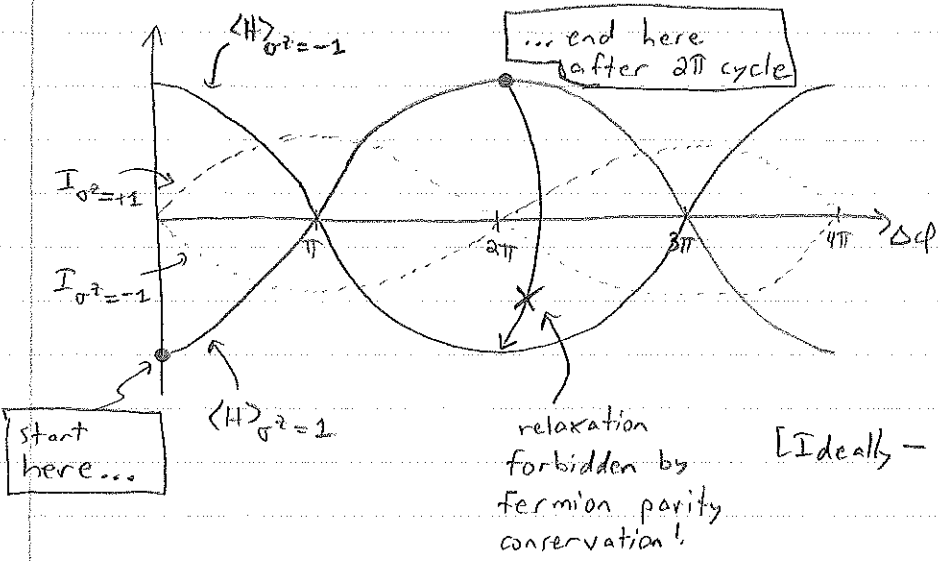 ⟨H⟩σᶻ=-1
... end here
after 2π cycle
Iσᶻ=+1
π
2π
3π
4π
Δφ
Iσᶻ=-1
⟨H⟩σᶻ=1
start
here...
relaxation
forbidden by
fermion parity
conservation!
[Ideally —